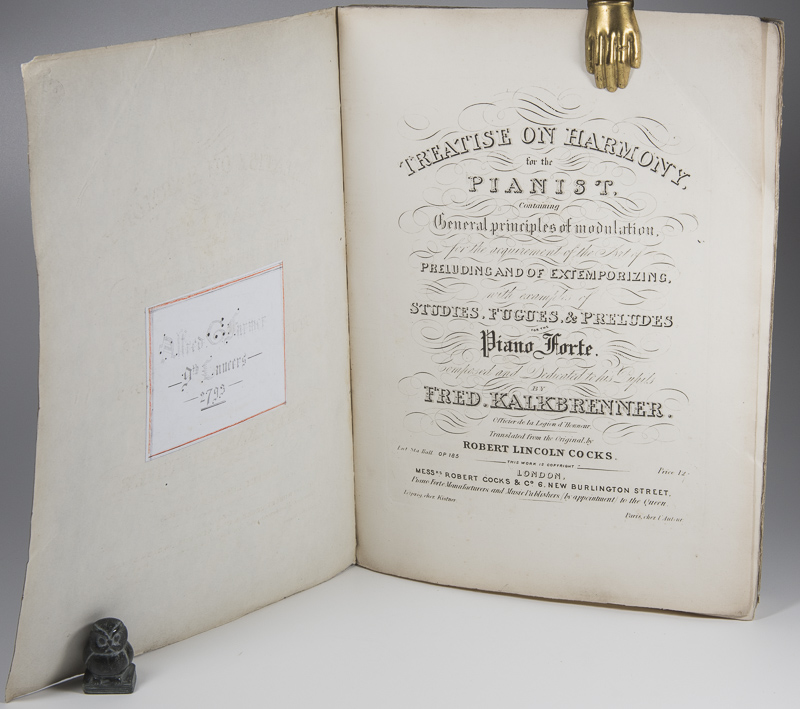 Alfred
9th Lancers
2793
TREATISE ON HARMONY,
for the
PIANIST,
Containing
General principles of modulation,
for the acquirement of the Art of
PRELUDING AND OF EXTEMPORIZING,
with examples of
STUDIES, FUGUES, & PRELUDES
FOR THE
Piano Forte.
Composed and Dedicated to his Pupils
BY
FRED. KALKBRENNER.
Officier de la Legion d'Honneur.
Translated from the Original, by
ROBERT LINCOLN COCKS.
Ent. Sta. Hall. OP 185 THIS WORK IS COPYRIGHT Price 12/-
LONDON,
MESSRS ROBERT COCKS & CO 6, NEW BURLINGTON STREET,
Piano Forte Manufacturers and Music Publishers (by appointment) to the Queen.
Leipzig, chez Kistner Paris, chez l'Auteur